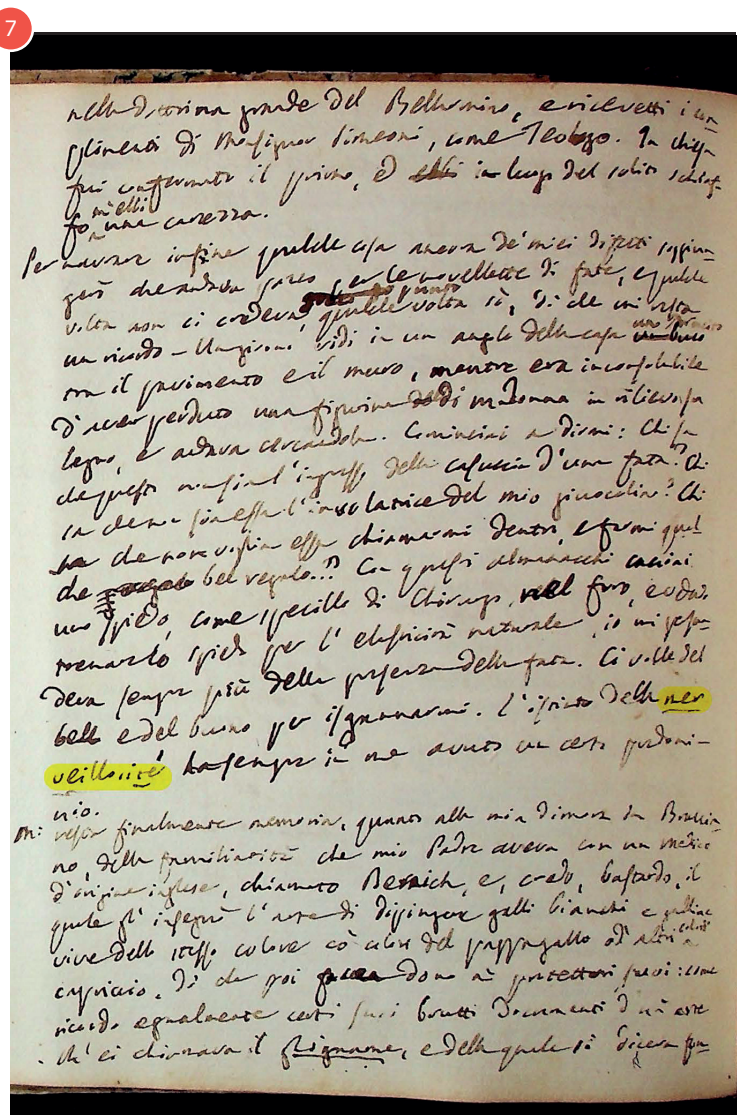 7
nella dottrina grande del Bellarmino, e ricevetti i com-
plimenti di Monsignor Simeoni, come Teologo. In chiesa
fui confermato il primo, ed ebbi in luogo del solito schiaf-
fo una carezza.
Per narrare infine qualche cosa ancora de' miei difetti soggiun-
gerò che andava pazzo per le novellette di fate, e qualche
volta non ci credeva, qualche volta sì, di che mi resta
un ricordo – Un giorno vidi in un angolo della casa
tra il pavimento e il muro, mentre era inconsolabile
d'aver perduto una figurina di madonna in rilievo
legno, e andava cercandola. Cominciai a dirmi: Chi sa
che questo non sia l'ingresso della casuccia d'una fata? Chi
sa che non sia essa l'involatrice del mio giuocolino? Chi
sa che non voglia essa chiamarmi dentro, e farmi qual-
che bel regalo...? Con questi almanacchi cacciai
uno spiedo, come specillo di Chirurgo, nel foro, e
lo spiedo per l'elasticità naturale, io mi persua-
deva sempre più della presenza della fata. Ci volle del
bello e del buono per isgannarmi. L'istinto della mer
veillosité ha sempre in me avuto un certo predomi-
nio.
finalmente memoria, quanto alla mia dimora in Braccia-
no, della familiarità che mio Padre aveva con un medico
d'origine inglese, chiamato, e, credo, bastardo, il
quale gl'insegnò l'arte di dipingere galli bianchi e galline
vive dello stesso colore co' colori del pappagallo od altri a
capriccio, di che poi dono a' protettori suoi: come
ricordo egualmente certi suoi brutti documenti d'un'arte
ch'ei chiamava il, e della quale si diceva